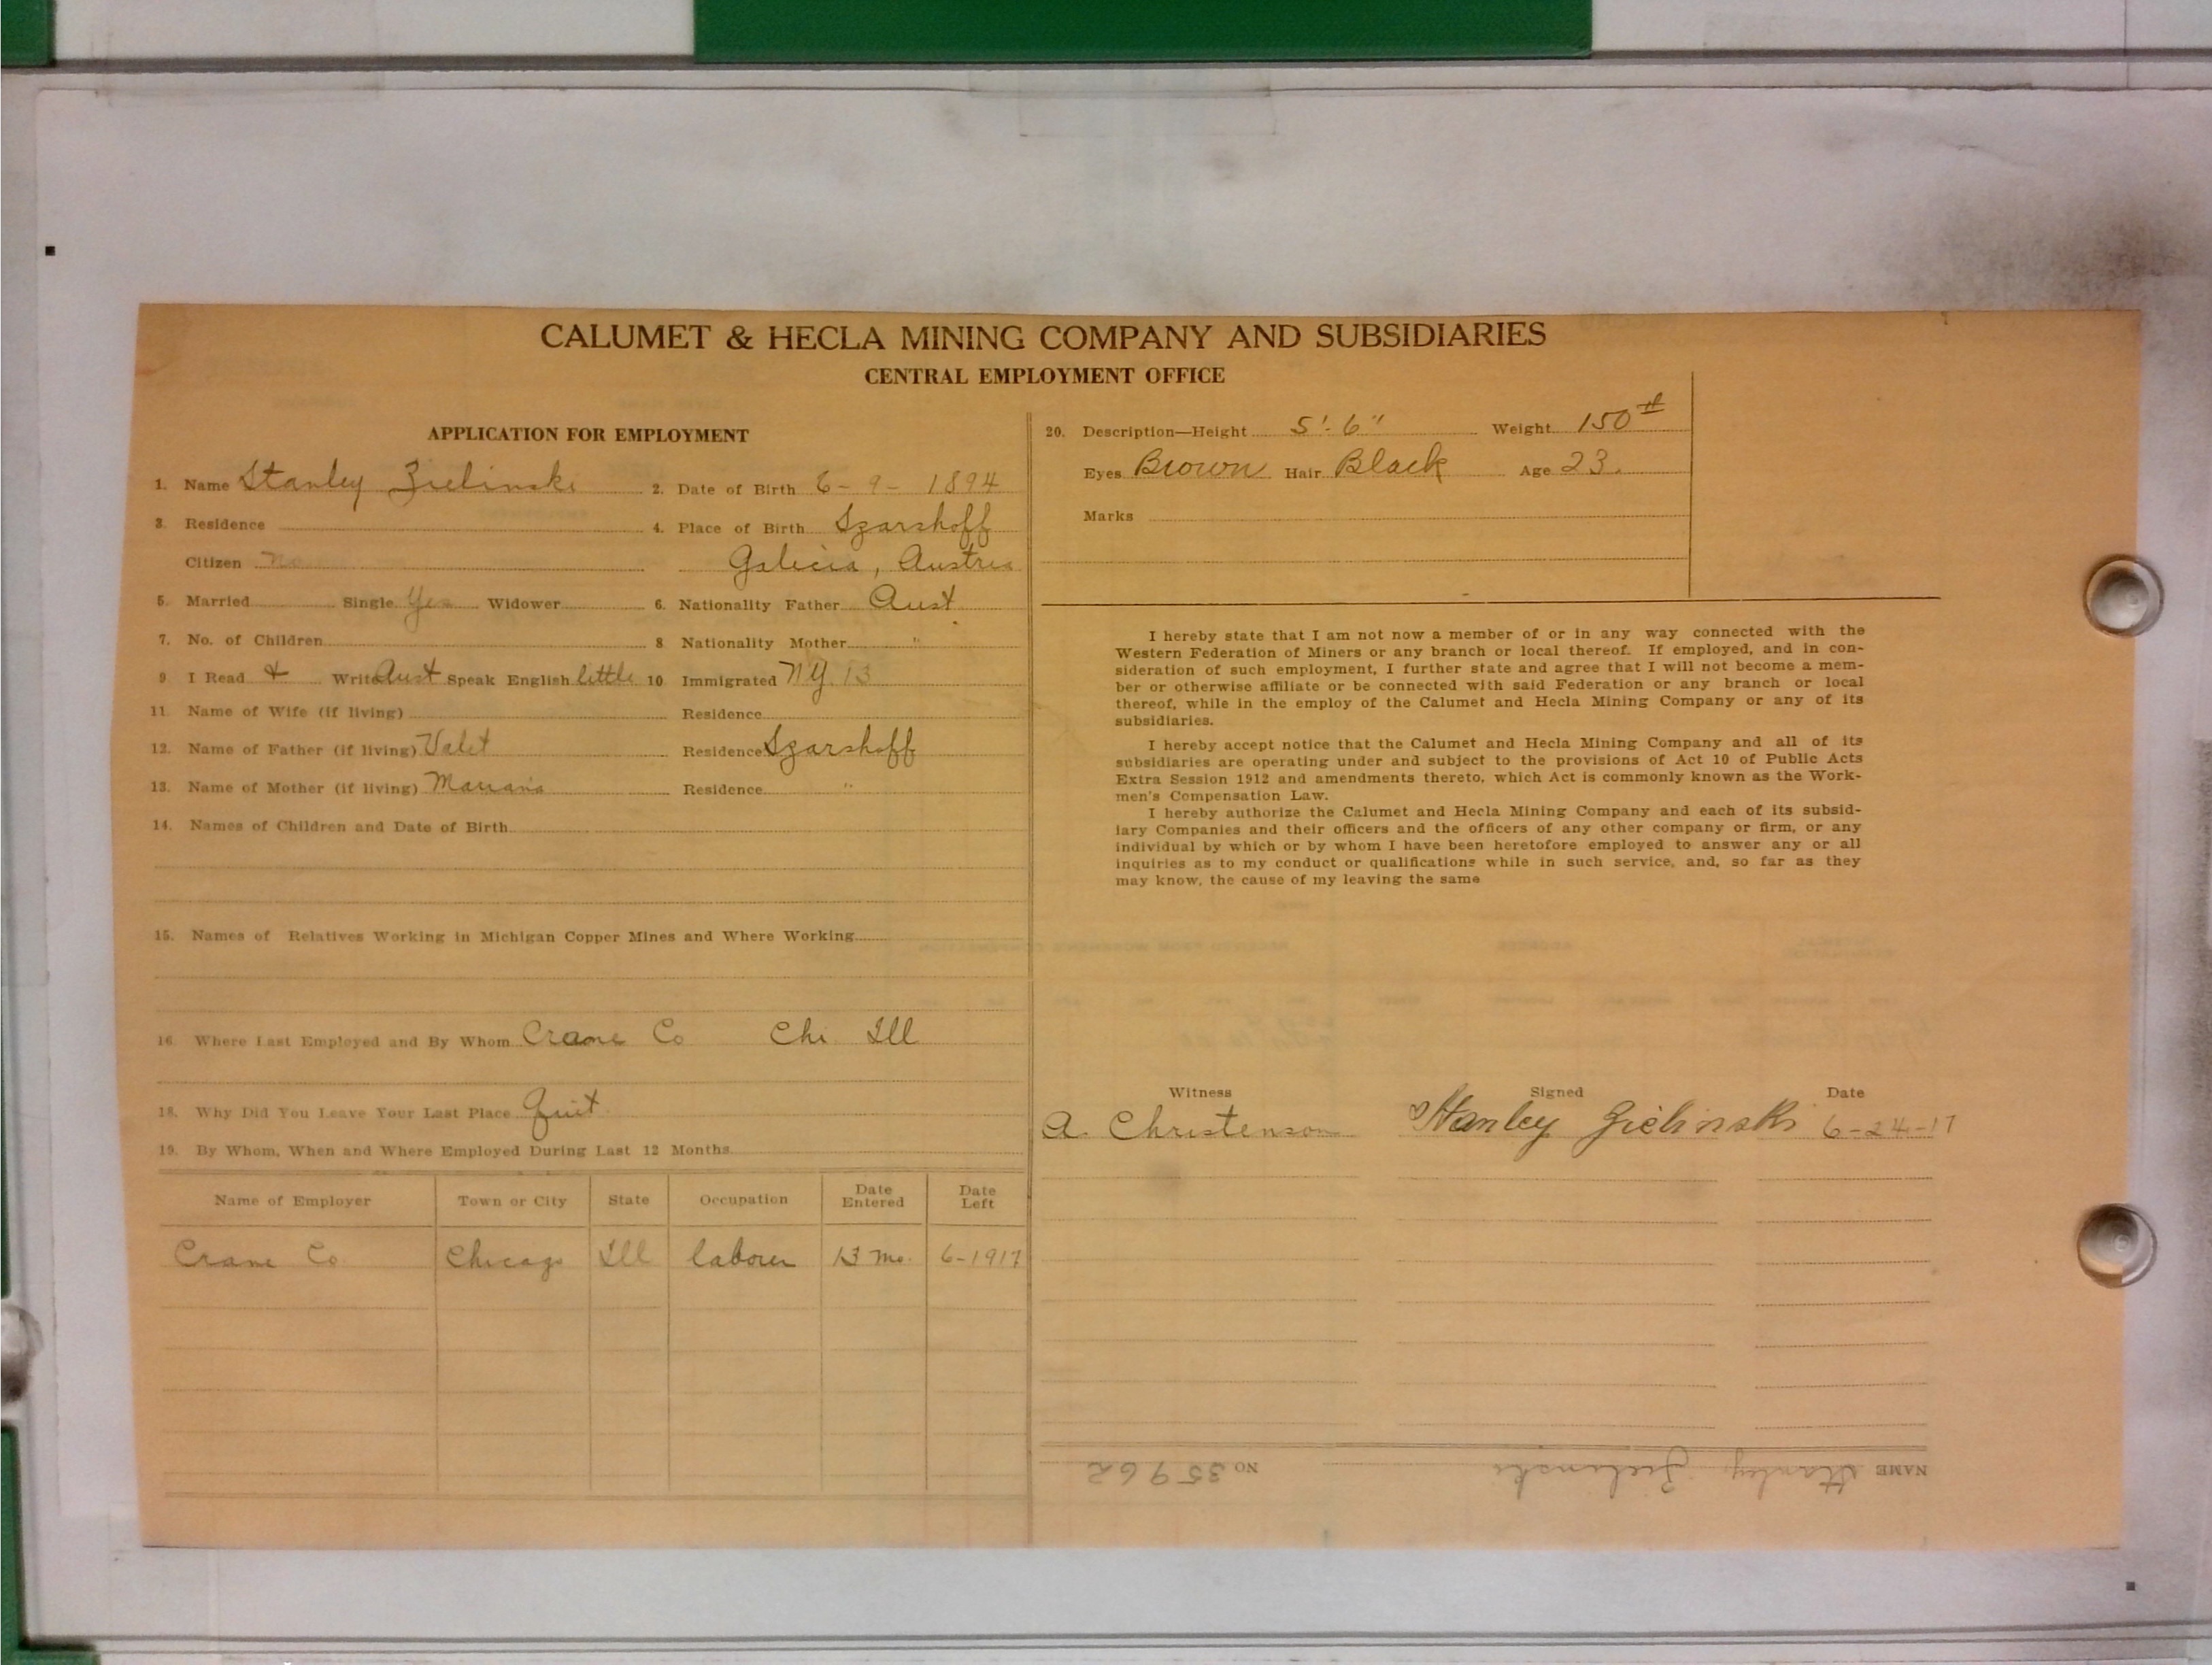 CALUMET & HECLA MINING COMPANY AND SUBSIDIARIES
CENTRAL EMPLOYMENT OFFICE
APPLICATION FOR EMPLOYMENT
1. Name Stanley Zielinski 2. Date of Birth 6-9-1894
3. Residence 4. Place of Birth Szarshoff
Citizen No Galicia, Austria
5. Married Single Yes Widower 6. Nationality Father Aust
7. No. of Children 8 Nationality Mother "
9. I Read & Write Aust Speak English little 10 Immigrated N.Y. 13
11. Name of Wife (if living) Residence
12. Name of Father (if living) Valet Residence Szarshoff
13. Name of Mother (if living) Mariana Residence "
14. Names of Children and Date of Birth
15. Names of Relatives Working in Michigan Copper Mines and Where Working
16. Where Last Employed and By Whom Crane Co Chi Ill
18. Why Did You Leave Your Last Place Quit
19. By Whom, When and Where Employed During Last 12 Months
Name of Employer Town or City State Occupation Date Entered Date Left
Crane Co Chicago Ill laborer 13 Mo. 6-1917
20. Description—Height 5'-6" Weight 150#
Eyes Brown Hair Black Age 23.
Marks
I hereby state that I am not now a member of or in any way connected with the
Western Federation of Miners or any branch or local thereof. If employed, and in con-
sideration of such employment, I further state and agree that I will not become a mem-
ber or otherwise affiliate or be connected with said Federation or any branch or local
thereof, while in the employ of the Calumet and Hecla Mining Company or any of its
subsidiaries.
I hereby accept notice that the Calumet and Hecla Mining Company and all of its
subsidiaries are operating under and subject to the provisions of Act 10 of Public Acts
Extra Session 1912 and amendments thereto, which Act is commonly known as the Work-
men's Compensation Law.
I hereby authorize the Calumet and Hecla Mining Company and each of its subsid-
iary Companies and their officers and the officers of any other company or firm, or any
individual by which or by whom I have been heretofore employed to answer any or all
inquiries as to my conduct or qualifications while in such service, and, so far as they
may know, the cause of my leaving the same
Witness Signed Date
A. Christenson Stanley Zielinski 6-24-17
NAME Stanley Zielinski NO 35962